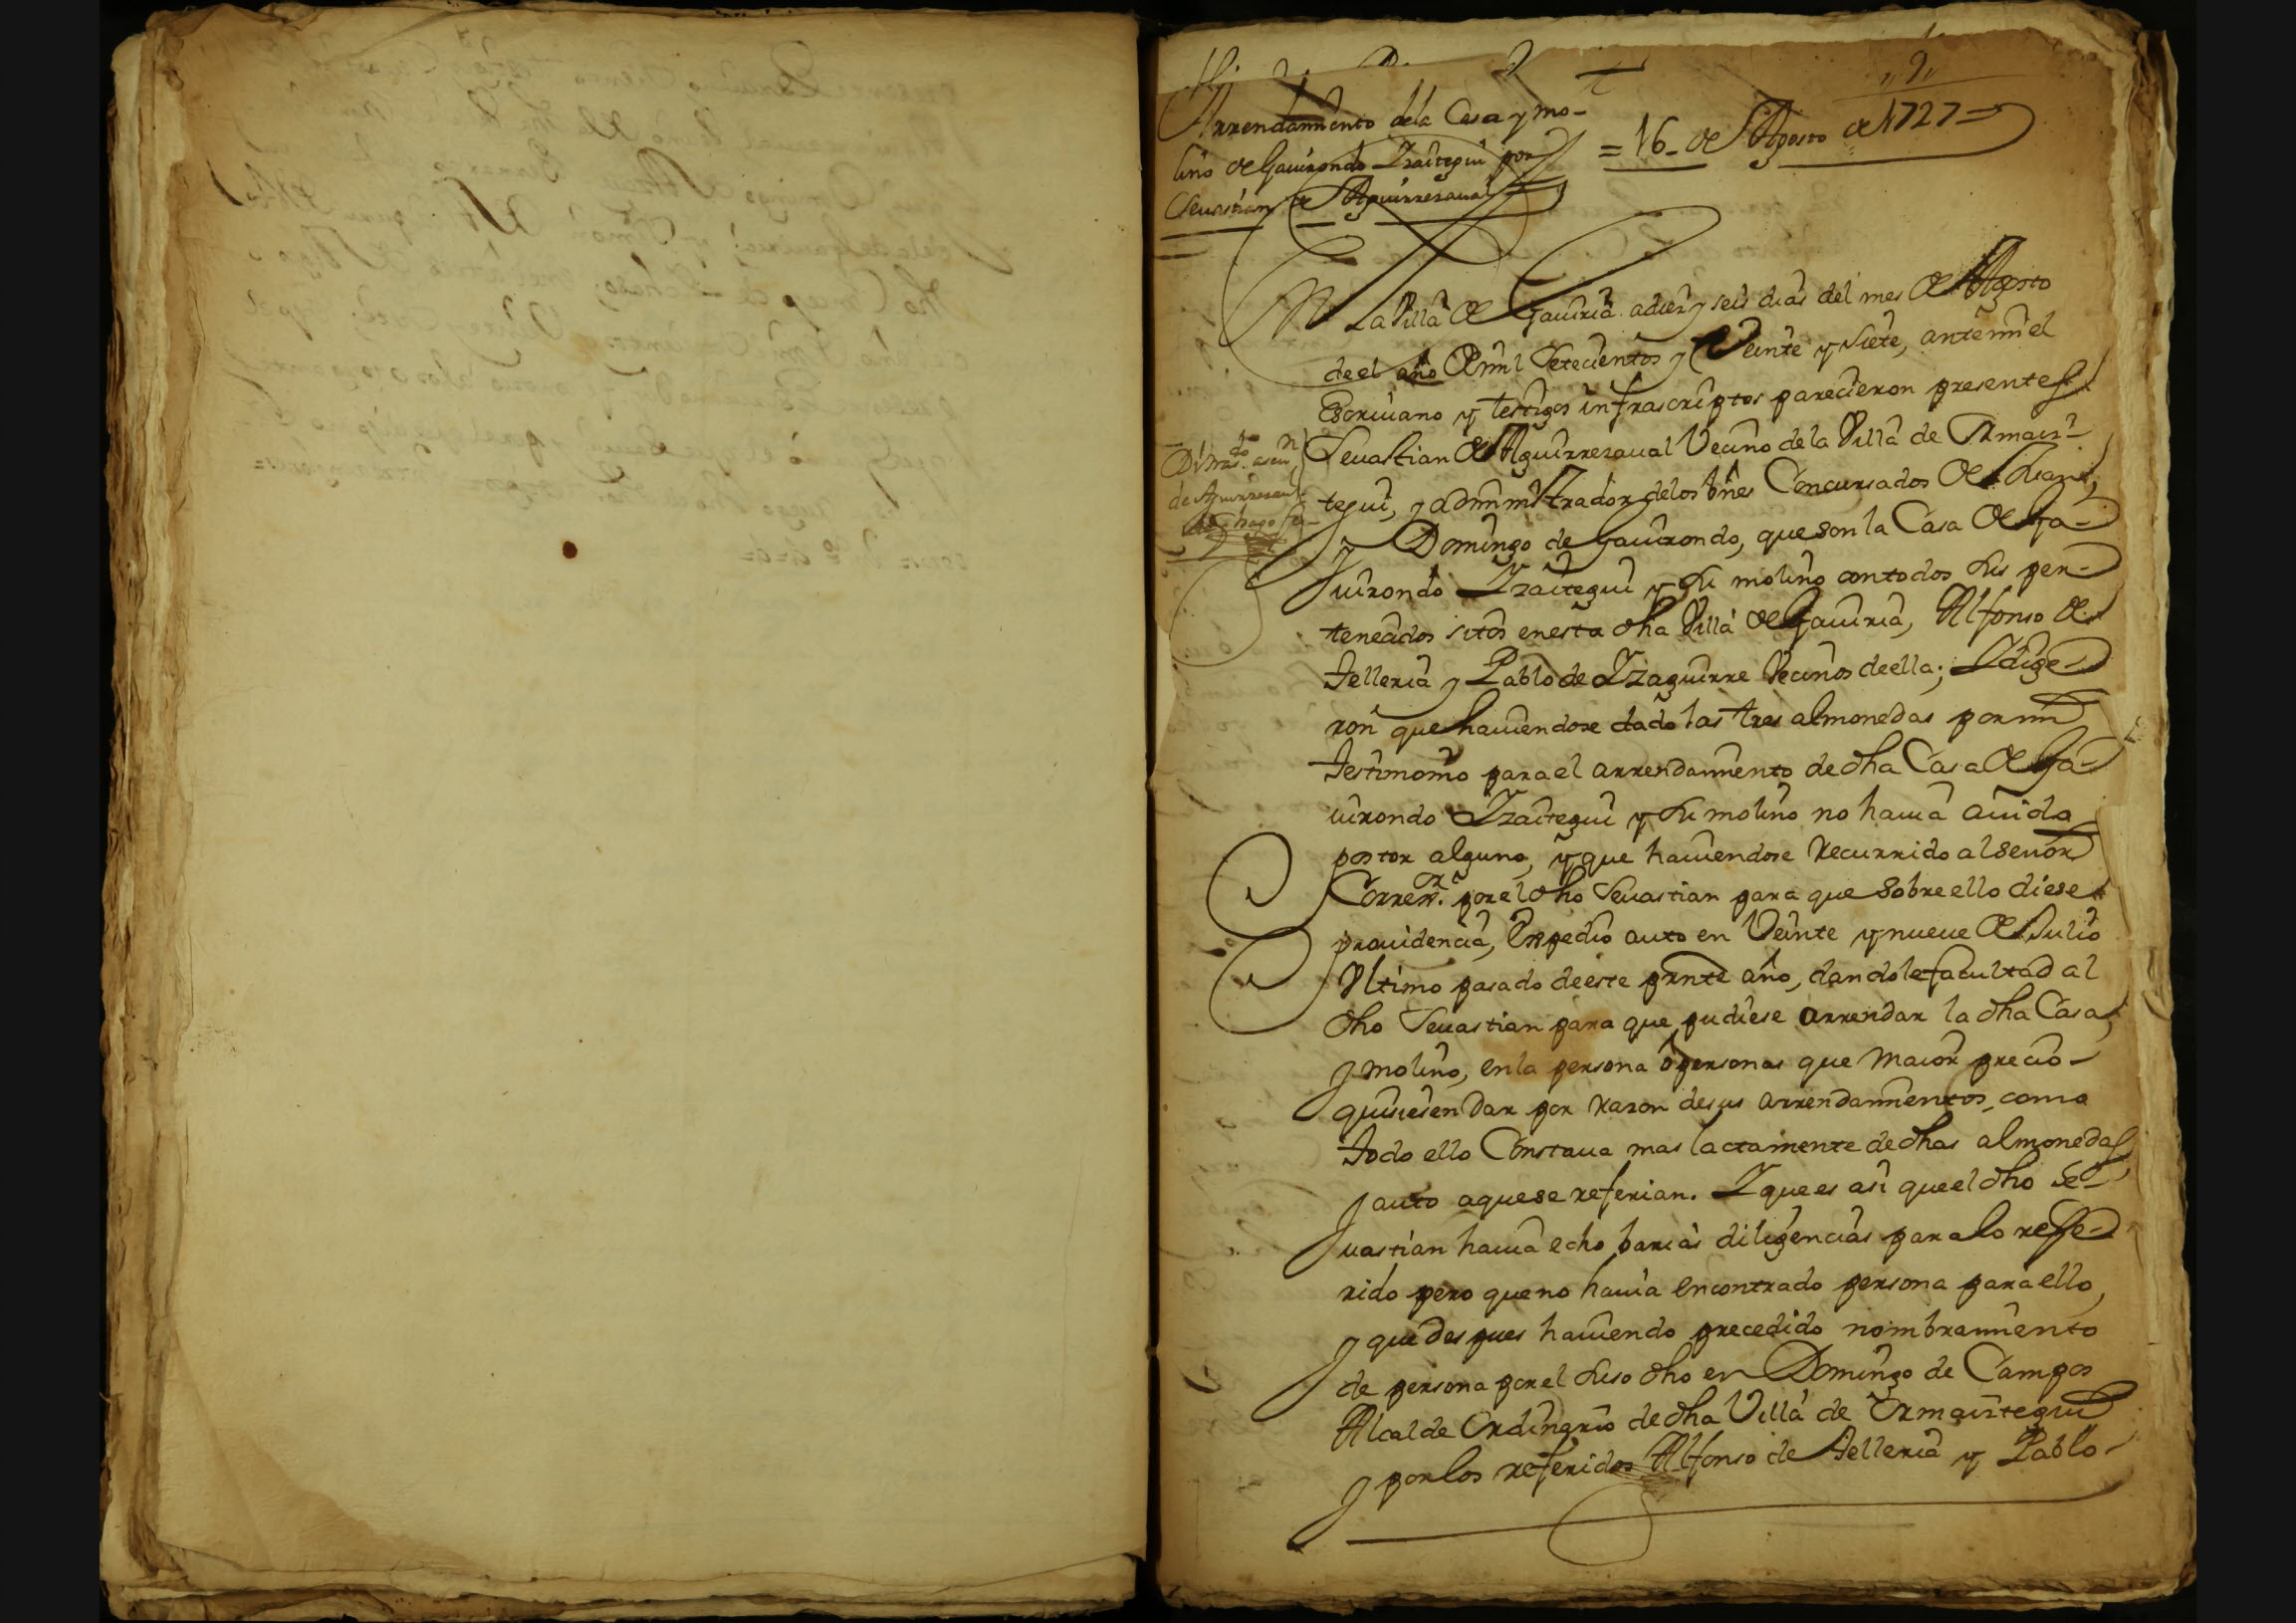 Arrendamiento dela Casa y mo-
lino de Gavirondo Yzaitegui por
Sevastian de Aguirrezaval
= 16 de Agosto de 1727 =
"9"
En La Villa de Gaviria adiez y seis dias del mes de Agosto
de el año de mil Setecientos y Veinte y siete, antemi el
Escrivano y testigos infrascriptos parecieron presentes
Sevastian de Aguirrezaval Vecino de la Villa de Ormaiz-
tegui, y administrador delos bnes Concursados de
Domingo de Gavirondo, que son la Casa de Ga-
virondo Yzaitegui y su molino contodos sus per-
tenecidos sitos enesta dha Villa de Gaviria, Alfonso de
Telleria y Pablo de Yzaguirre Vecinos deella; Y dige-
ron que haviendose dado las tres almonedas por mi
testimonio para el arrendamiento dedha Casa de Ga-
virondo Yzaitegui y su molino no havia avido
postor alguno, y que haviendose Recurrido al señor
Correxor. por el dho Sevastian para que sobre ello diese
providencia, Expedio auto en Veinte y nueve de Julio
Ultimo pasado deeste prnte año, dandole facultad al
dho Sevastian para que pudiese arrendar la dha Casa,
y molino, enla persona ò personas que maior precio
quisiesen dar por razon desus arrendamientos, como
todo ello Constava mas lactamente dedhas almonedas
y auto aque se referian. Y que es asi que el dho Se-
vastian havia echo barias diligencias para lo refe-
rido pero que no havia encontrado persona para ello,
y que despues haviendo precedido nombramiento
de persona por el suso dho en Domingo de Campos
Alcalde Ordinario dedha Villa de Ormaiztegui
y por los referidos Alfonso de Telleria y Pablo
de Aguirrezaval